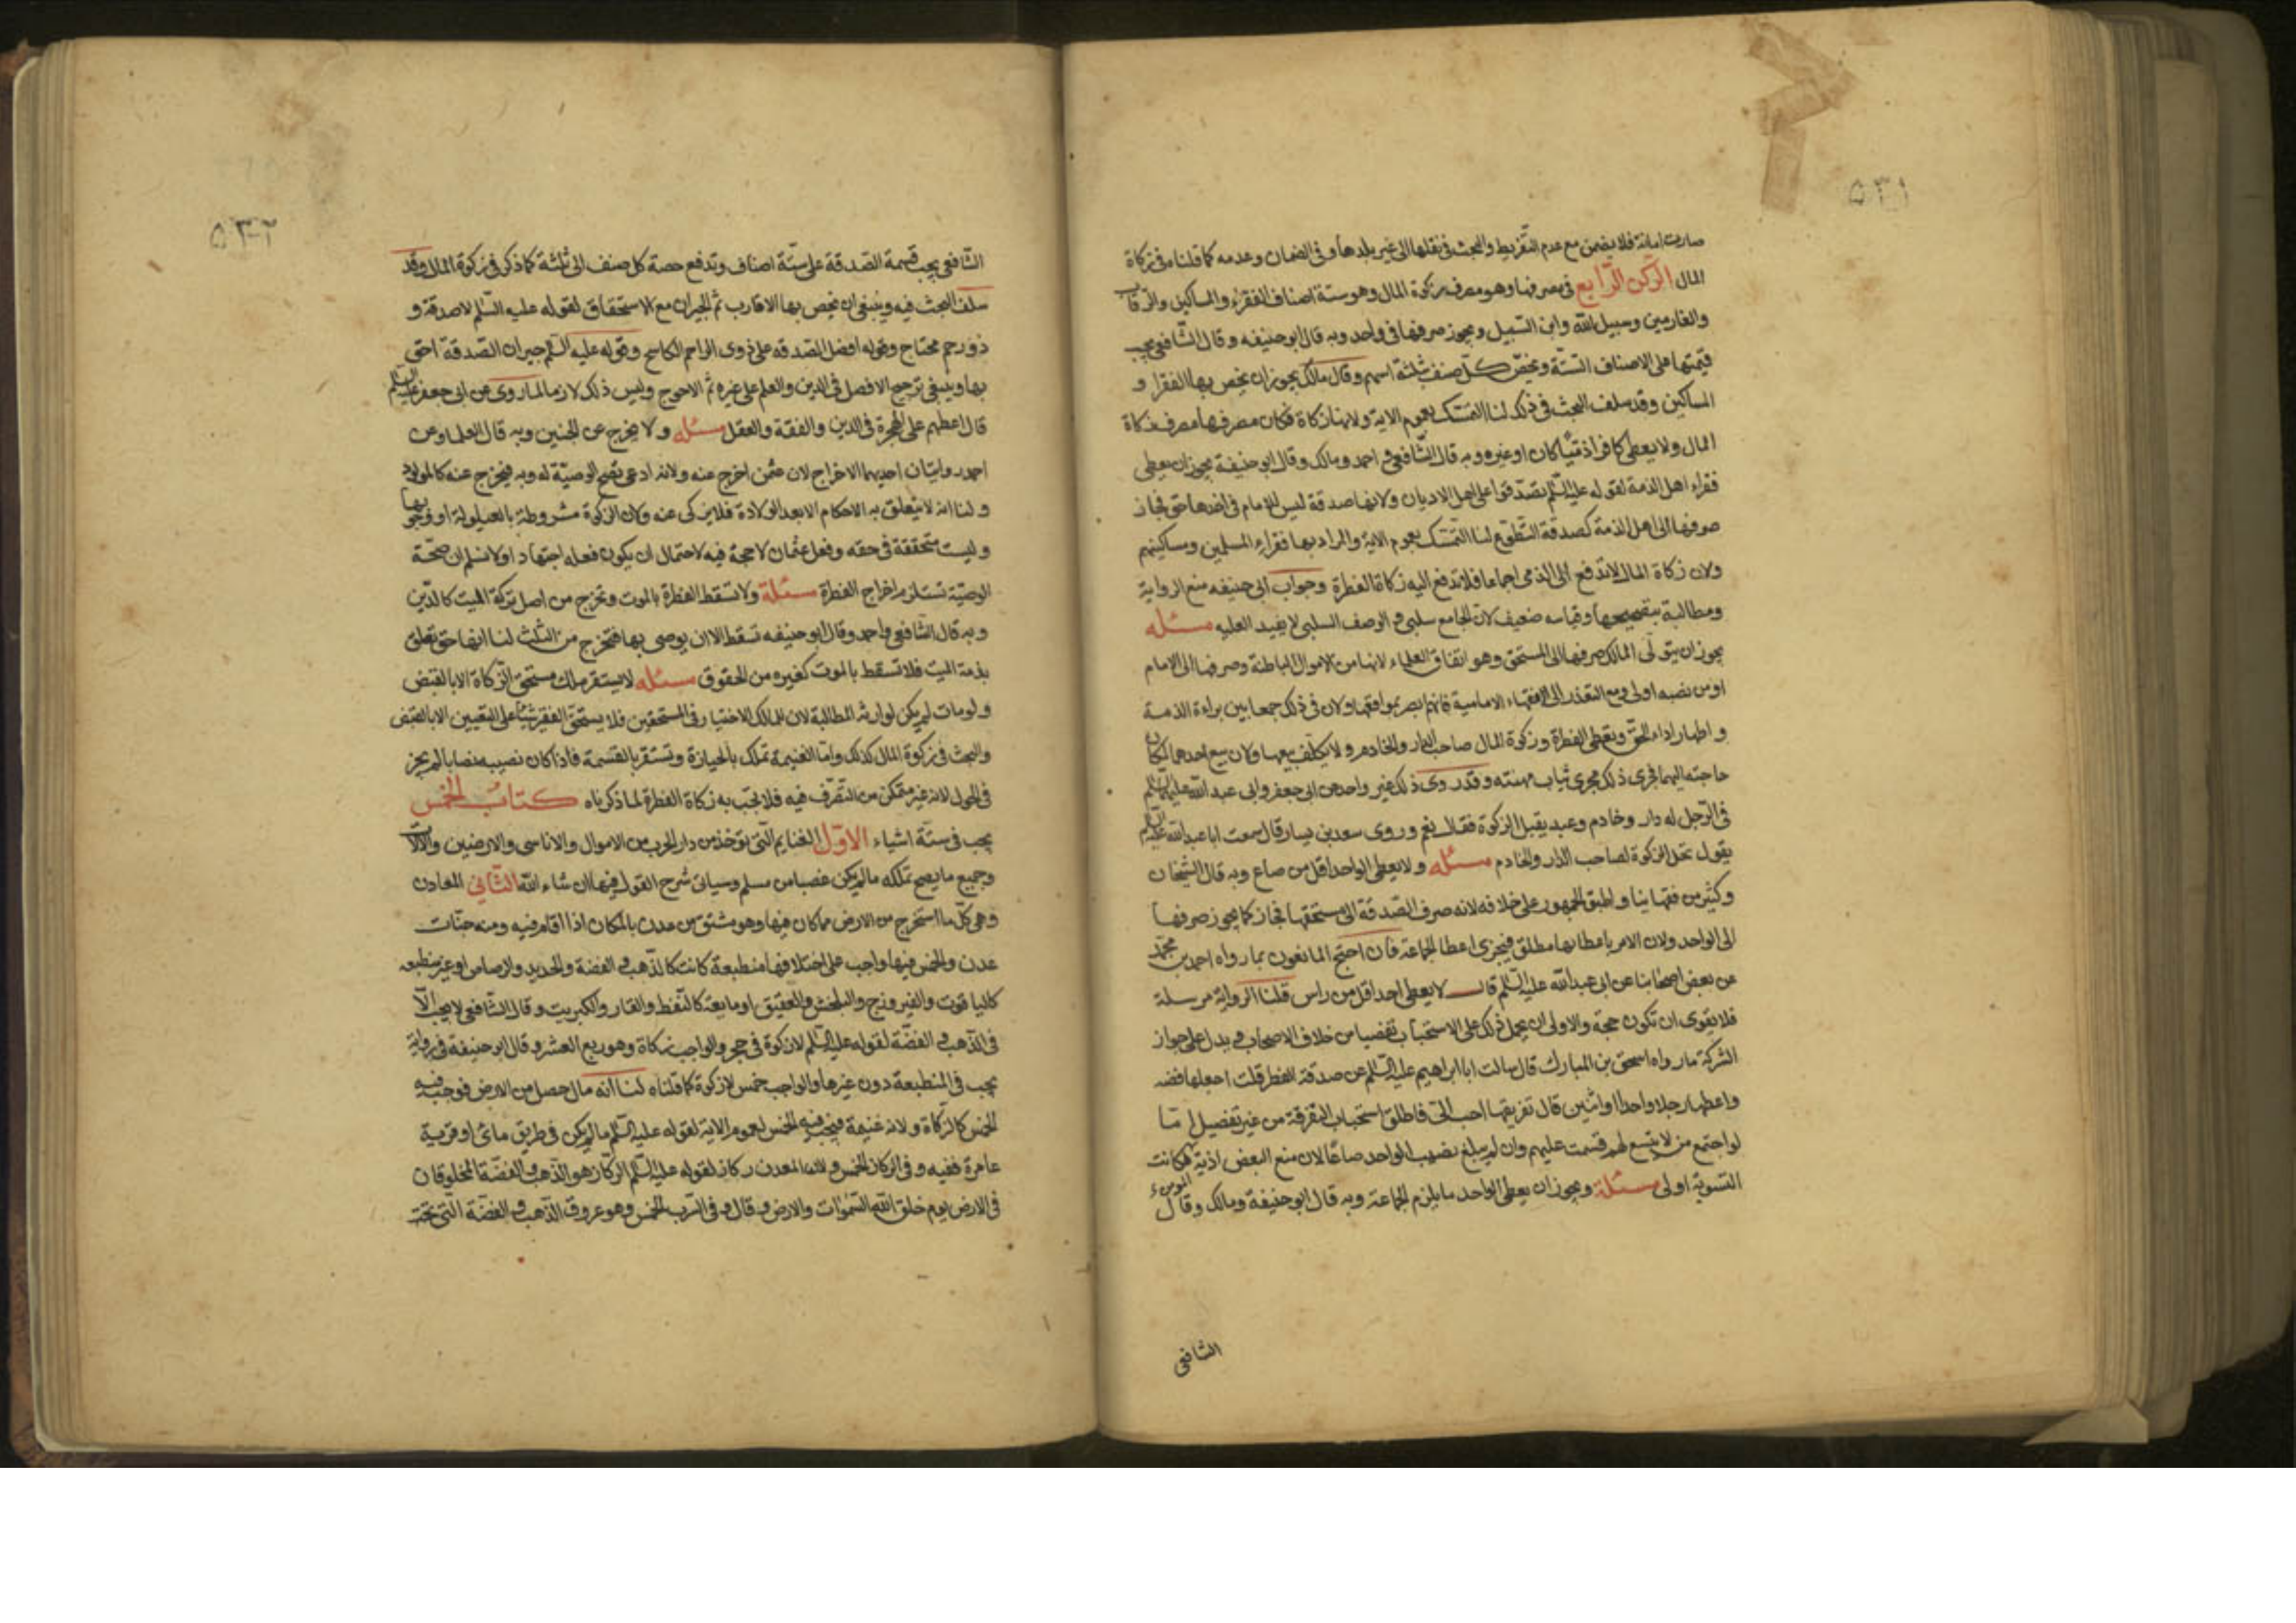 ٥٣١
صارت امانة فلا يضمن مع عدم التفريط والبحث فى نقلها الى غير بلدها وفى الضمان وعدمه كما قلناه فى زكاة
المال الركن الرابع فى مصرفها وهو مصرف زكوة المال وهو ستة اصناف الفقراء والمساكين والرقاب
والغارمين وسبيل الله وابن السبيل ويجوز صرفها فى واحد وبه قال ابو حنيفه وقال الشافعى يجب
قيمتها على الاصناف الستة ويخص كل صنف بثلثة اسهم وقال مالك يجوز ان يخص بها الفقرا و
المساكين وقد سلف البحث فى ذلك لنا التمسك بعموم الاية ولانها زكاة فكان مصرفها مصرف زكاة
المال ولا يعطى كافرا ذميا كان او غيره وبه قال الشافعى و احمد ومالك وقال ابو حنيفة يجوز ان يعطى
فقراء اهل الذمة لقوله عليه السلم تصدقوا على اهل الاديان ولانها صدقة ليس للامام فى اخذها حق فجاز
صرفها الى اهل الذمة كصدقة التطوع لنا التمسك بعموم الاية والمراد بها فقراء المسلمين ومساكينهم
ولان زكاة المال لا تدفع الى الذمى اجماعا فلا تدفع اليه زكاة الفطرة وجواب ابى حنيفه منع الرواية
ومطالبة بتصحيحها وقياسه ضعيف لان الجامع سلبى و الوصف السلبى لا يفيد العليه مسئله
يجوز ان يتولى المالك صرفها الى المستحق وهو اتفاق العلماء لانها من الاموال الباطنة وصرفها الى الامام
او من نصبه اولى ومع التعذر الى الفقهاء الامامية فانهم ابصر بمواقعها ولان فى ذلك جمعا بين براءة الذمة
و اظهار اداء الحق ويعطى الفطرة وزكوة المال صاحب الدار والخادم ولا يكلف بيعهما ولان بيع احدهما لمكان
حاجته اليهما فجرى ذلك مجرى ثياب مهنته وقد روى ذلك غير واحد عن ابى جعفر وابى عبد الله عليهما السلم
فى الرجل له دار وخادم وعبد يقبل الزكوة فقال نعم وروى سعد بن يسار قال سمعت ابا عبد الله عليه السلم
يقول تحل الزكوة لصاحب الدار والخادم مسئله ولا يعطى الواحد اقل من صاع وبه قال الشيخان
وكثير من فقهائنا واطبق الجمهور على خلافه لانه صرف الصدقة الى مستحقها فجاز كما يجوز صرفها
الى الواحد ولان الامر باعطائها مطلق فيجزى اعطا الجماعة فان احتج المانعون بما رواه احمد بن محمد
عن بعض اصحابنا عن ابى عبد الله عليه السلم قال لا يعطى احد اقل من راس قلنا الرواية مرسلة
فلا يقوى ان تكون حجة والاولى ان يحمل ذلك على الاستحباب تفصيا من خلاف الاصحاب و يدل على جواز
الشركة ما رواه اسحق بن المبارك قال سالت ابا ابراهيم عليه السلم عن صدقة الفطر قلت اجعلها فضه
واعطها رجلا واحدا او اثنين قال تفريقها احب الى فاطلق استحباب التفرقة من غير تفصيل اما
لو اجتمع من لا يتسع لهم قسمت عليهم وان لم يبلغ نصيب الواحد صاعا لان منع البعض اذية لهم فكانت
التسوية اولى مسئلة ويجوز ان يعطى الواحد ما يلزم الجماعة وبه قال ابو حنيفة ومالك وقال
الشافعى
٥٣٢
الشافعى يجب قسمة الصدقة على ستة اصناف وتدفع حصة كل صنف الى ثلثة كما ذكر فى زكوة المال وقد
سلف البحث فيه وينبغى ان يخص بها الاقارب ثم الجيران مع الاستحقاق لقوله عليه السلم لا صدقة و
ذو رحم محتاج وقوله افضل الصدقه على ذوى الراحم الكاسح وقوله عليه السلم جيران الصدقة احق
بها وينبغى ترجيح الافضل فى الدين والعلم على غيره ثم الاحوج وليس ذلك لازما لما روى عن ابى جعفر عليه السلم
قال اعطهم على الهجرة فى الدين والفقة والعقل مسئله ولا يخرج عن الجنين وبه قال العلما وعن
احمد روايتان احديهما الاخراج لان عثمن اخرج عنه ولانه ادعى تصح الوصية له وبه فيخرج عنه كالمولود
ولنا انه لا يتعلق به الاحكام الا بعد الولادة فلا يزكى عنه ولان الزكوة مشروطة بالعيلولة او وجوبها
وليست متحققة فى حقه وفعل عثمان لا حجة فيه لاحتمال ان يكون فعله اجتهادا ولا نسلم ان صحة
الوصية تستلزم اخراج الفطرة مسئلة ولا تسقط الفطرة بالموت وتخرج من اصل تركة الميت كالدين
وبه قال الشافعى واحمد وقال ابو حنيفه تسقط الا ان يوصى بها فتخرج من الثلث لنا انها حق تعلق
بذمة الميت فلا تسقط بالموت كغيره من الحقوق مسئله لا يستقر ملك مستحق الزكاة الا بالقبض
ولو مات لم يكن لوارثه المطالبة لان للمالك الاختيار فى المستحقين فلا يستحق الفقير شيئا على التعيين الا بالقبض
والبحث فى زكوة المال كذلك واما الغنيمة تملك بالحيازة وتستقر بالقسمة فاذا كان نصيبه نصابا لم يجز
فى الحول لانه غير متمكن من التصرف فيه فلا تجب به زكاة الفطرة لما ذكرناه كتاب الخمس
يجب فى ستة اشياء الاول الغنايم التى توخذ من دار الحرب من الاموال والاناسى والارضين والآلات
وجميع ما يصح تملكه ما لم يكن غصبا من مسلم وسياتى شرح القول فيها ان شاء الله الثانى المعادن
وهى كل ما استخرج من الارض مما كان فيها وهو مشتق من عدن بالمكان اذا اقام فيه ومنه جنات
عدن والخمس فيها واجب على اختلافها منطبعة كانت كالذهب و الفضة والحديد والرصاص او غير منطبعه
كالياقوت والفيروزج والبلخش والعقيق او مايعة كالنفط والقار والكبريت وقال الشافعى لا يجب الا
فى الذهب و الفضة لقوله عليه السلم لا زكوة فى حجر والواجب زكاة وهو ربع العشر و قال ابو حنيفة فى رواية
يجب فى المنطبعة دون غيرها والواجب خمس لا زكوة كما قلناه لنا انه مال حصل من الارض فوجب فيه
الخمس كالزكاة ولانه غنيمة فيجب فيه الخمس لعموم الاية لقوله عليه السلم ما لم يكن فى طريق ماتى او قرية
عامرة ففيه وفى الركاز الخمس ولان المعدن ركاز لقوله عليه السلم الركاز هو الذهب و الفضة المخلوقان
فى الارض يوم خلق الله السموات والارض و قال و فى السرب الخمس وهو عروق الذهب و الفضة التى تحت